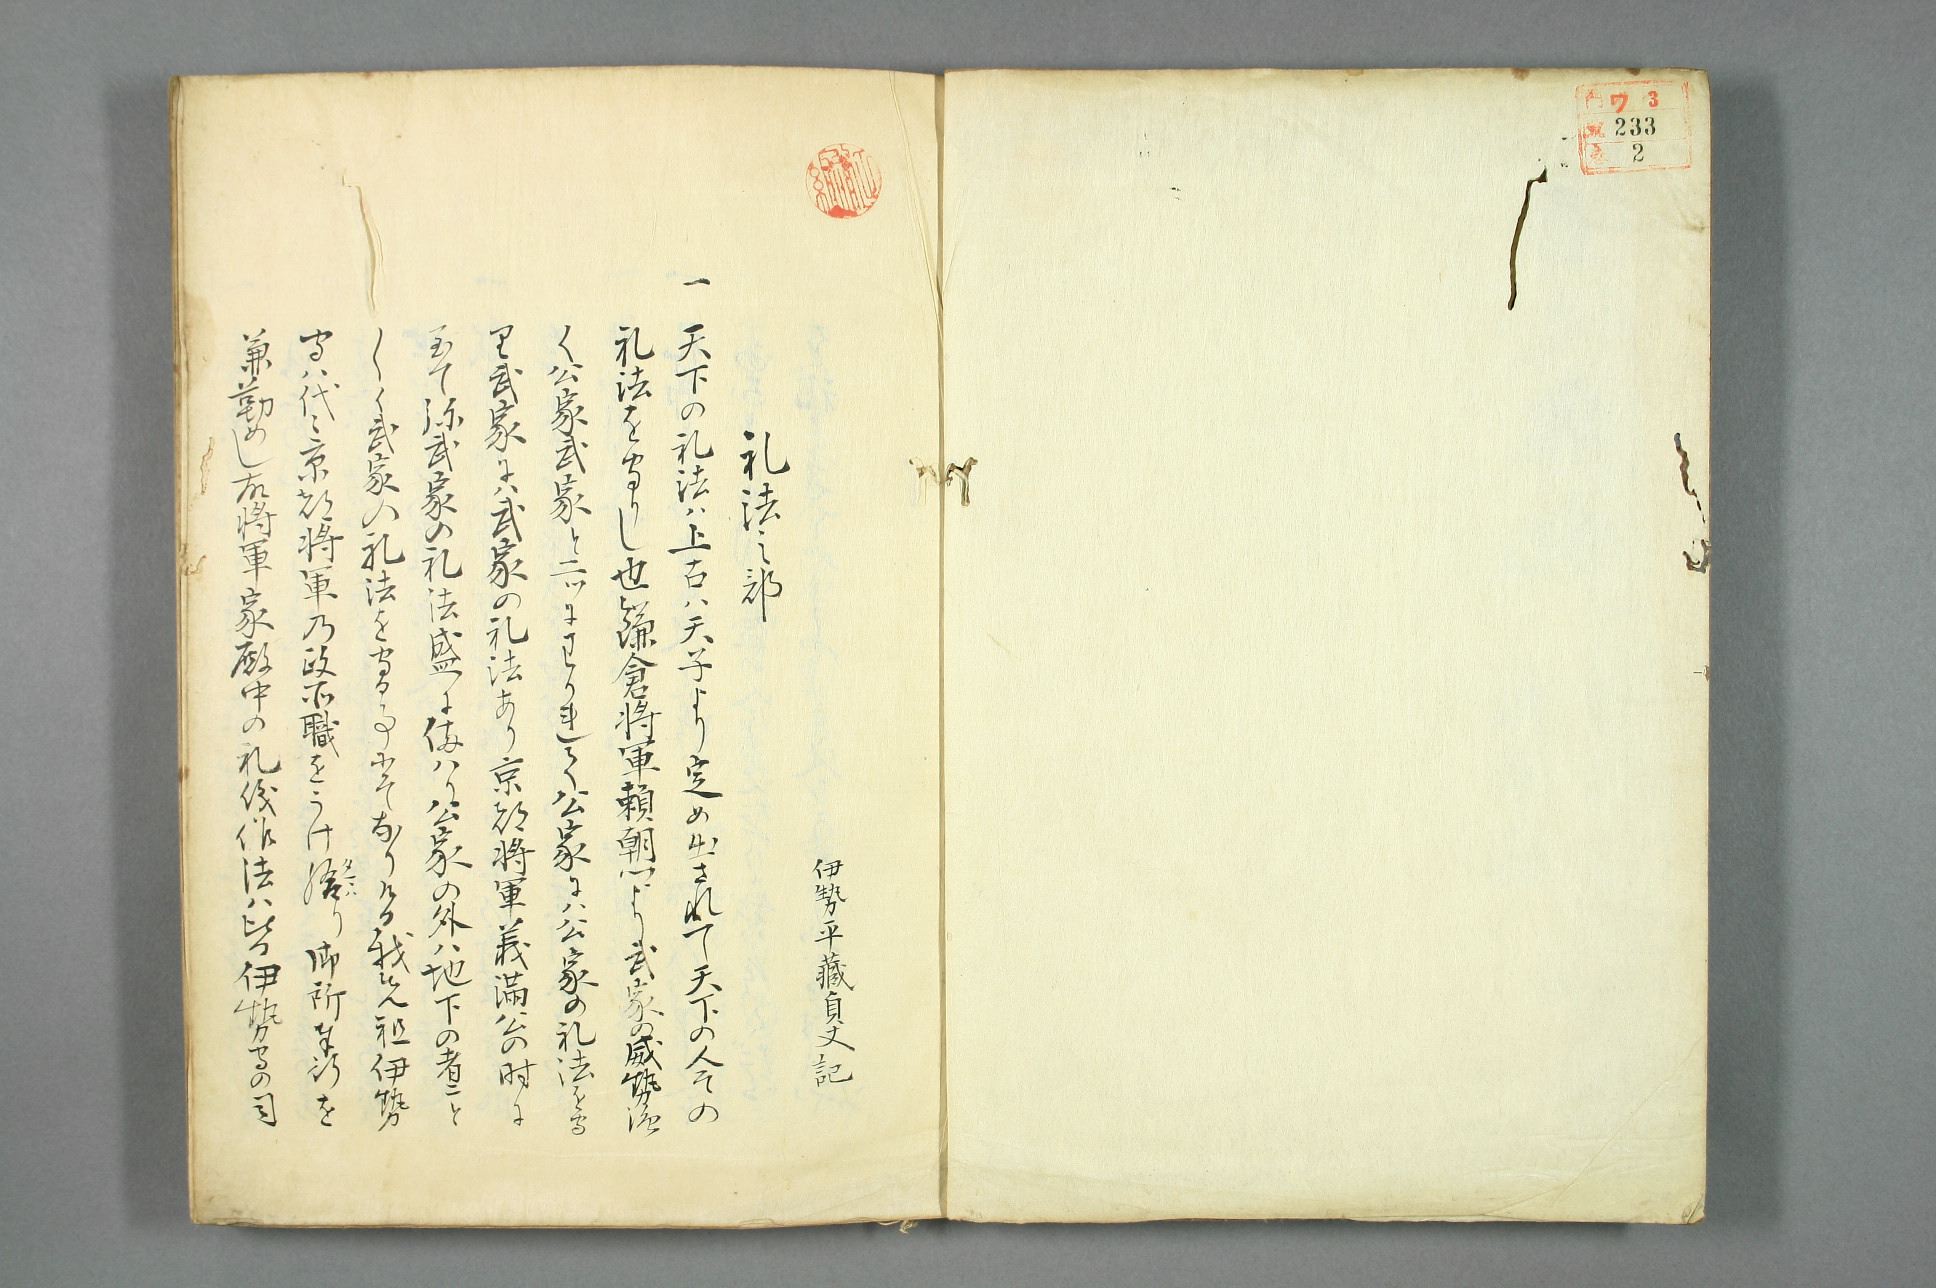 門 ワ 3
號 233
巻 2
伊勢平蔵貞丈記
礼法之部
一 天下の礼法ハ上古ハ天子より定め出されて天下の人その
礼法を守りし也鎌倉将軍頼朝公より武家の威勢強
く公家武家と二ツにわかれて公家にハ公家の礼法を守
り武家にハ武家の礼法あり京都将軍義満公の時に
至て弥武家の礼法盛に備ハり公家の外ハ地下の者こと
〱く武家の礼法を守る事にそなりける我先祖伊勢
守ハ代々京都将軍の政所職をうけ給り御所奉行を
兼勤めし故将軍家殿中の礼儀作法ハ皆伊勢守の司